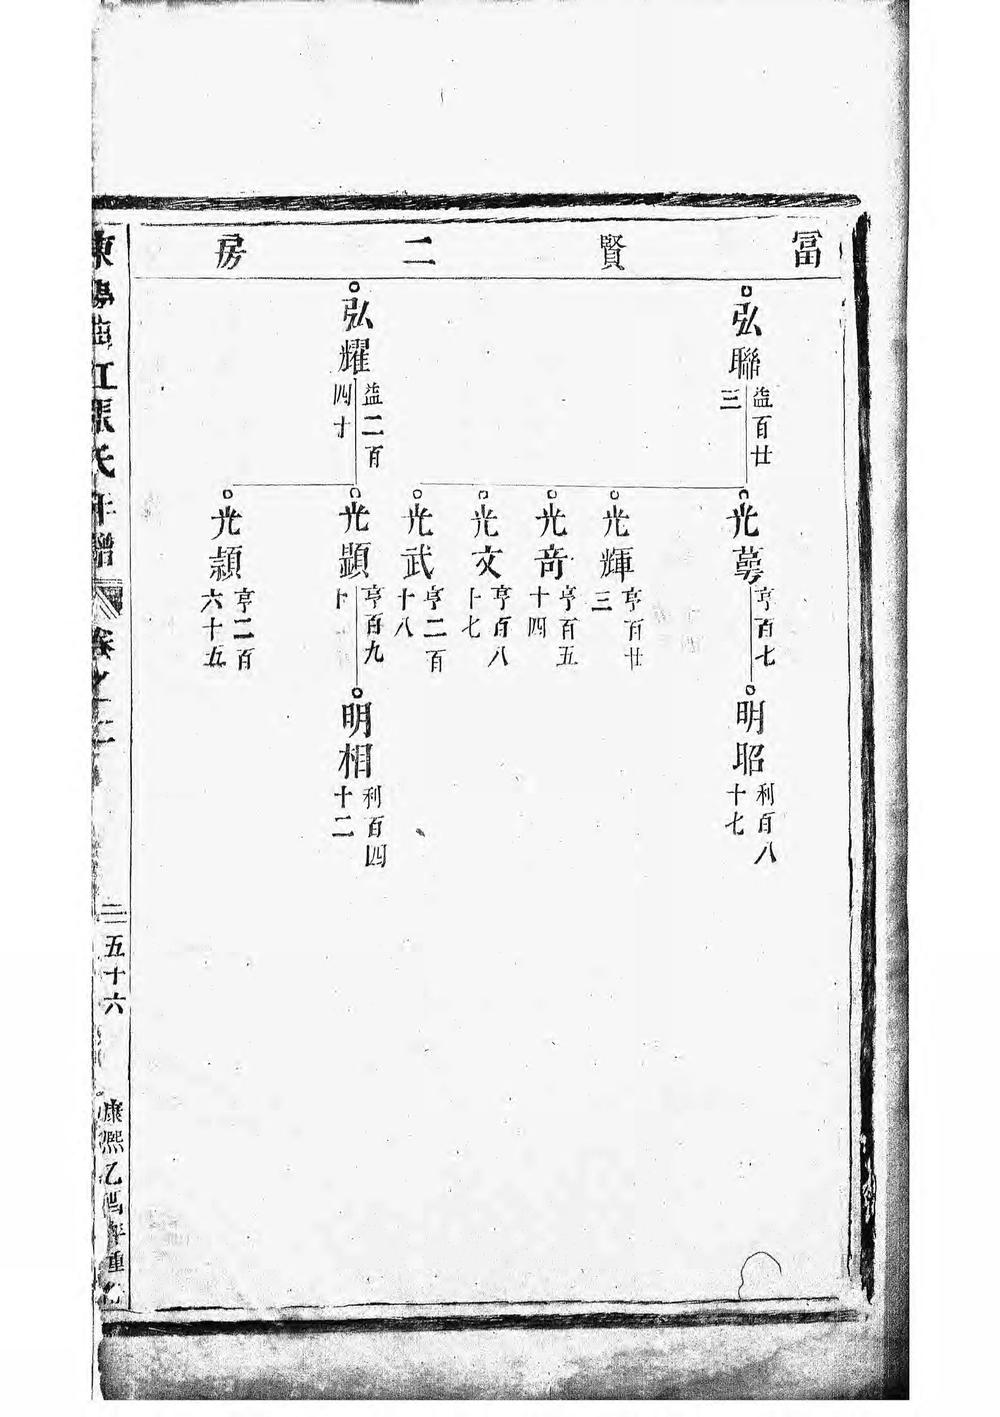 冨賢二房
弘聯
益百廿三
光蕚
亨百七
明昭
利百八十七
光輝
亨百廿三
光奇
亨百五十四
光文
亨百八十七
光武
亨二百十八
弘耀
益二百四十
光顕
亨百九十
明相
利百四十二
光頴
亨二百六十五
張氏
卷之二
五十六
康熙乙酉年重